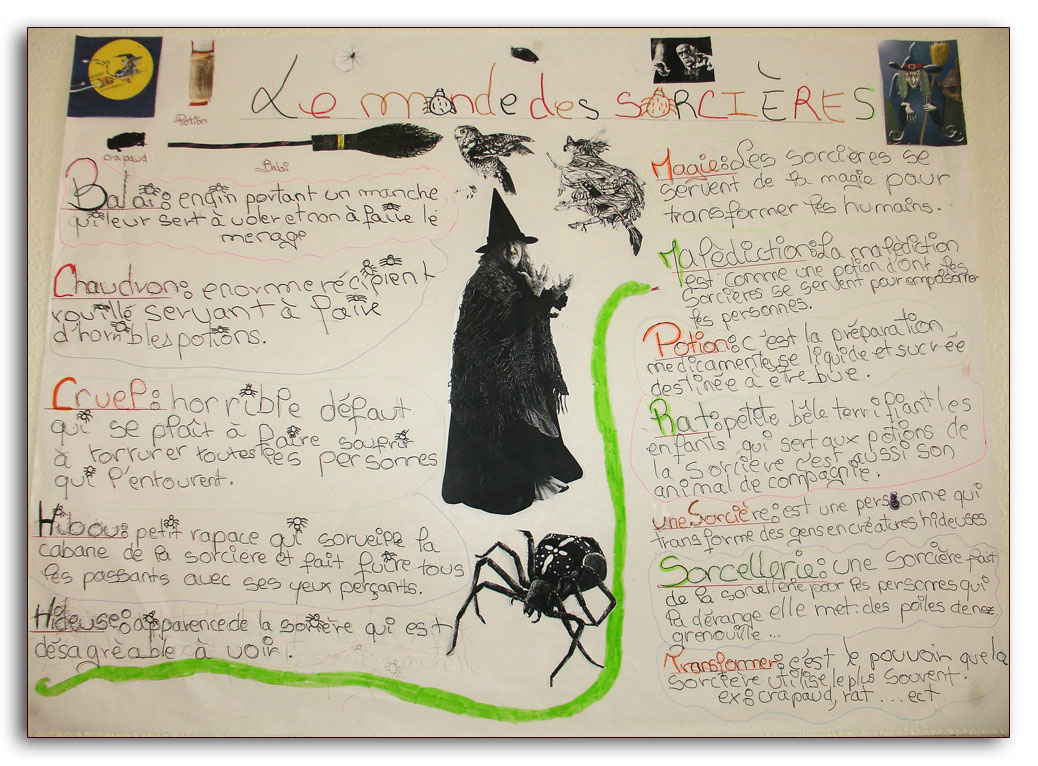 Le monde des SORCIÈRES
Potion
crapaud
Balai
Balai : engin portant un manche
qui leur sert à voler et non à faire le
menage
Chaudron : enorme récipient
rouillé servant à faire
d'horribles potions.
Cruel : horrible défaut
qui se plaît à faire soufrir
à torrurer toutes les personnes
qui l'entourent.
Hibou : petit rapace qui surveille la
cabane de la sorcière et fait fuire tous
les passants avec ses yeux perçants.
Hideuse : apparence de la sorcière qui est
désagrèable à voir.
Magie : Les sorcières se
servent de la magie pour
transformer les humains.
Malèdiction : La malèdiction
est comme une potion d'ont les
sorcières se servent pour empoisonner
les personnes.
Potion : c'est la prèparation
medicamenteuse liquide et sucrée
destinée à etre bue.
Rat : petite bête terrifiant les
enfants qui sert aux potions de
la sorcière c'est aussi son
animal de compagnie.
une Sorcière : est une personne qui
transforme des gens en créatures hideuses.
Sorcellerie : une sorcière fait
de la sorcellerie pour les personnes qui
la dérange elle met : des poiles de nez
grenouille ...
Transformer : c'est le pouvoir que la
sorcière utilise le plus souvent.
ex : crapaud, rat ... ect